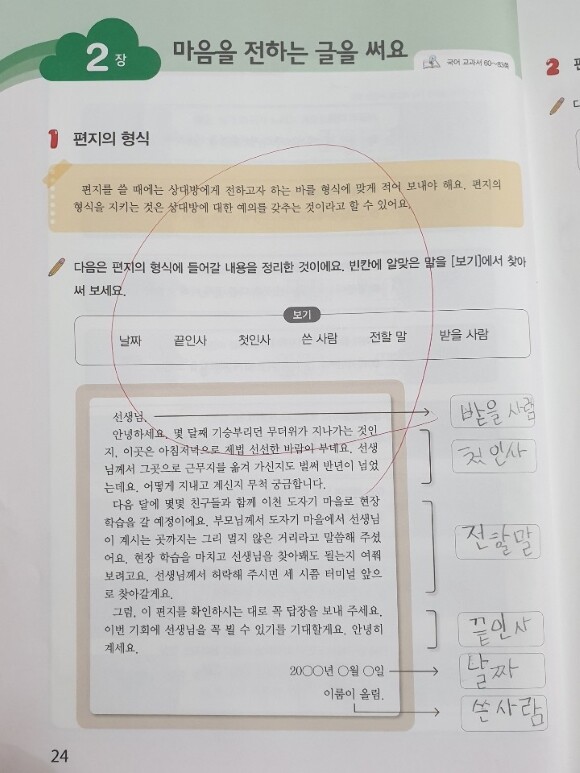 2장 마음을 전하는 글을 써요
국어 교과서 60~83쪽
1 편지의 형식
편지를 쓸 때에는 상대방에게 전하고자 하는 바를 형식에 맞게 적어 보내야 해요. 편지의
형식을 지키는 것은 상대방에 대한 예의를 갖추는 것이라고 할 수 있어요.
다음은 편지의 형식에 들어갈 내용을 정리한 것이에요. 빈칸에 알맞은 말을 [보기]에서 찾아
써 보세요.
보기
날짜 끝인사 첫인사 쓴 사람 전할 말 받을 사람
선생님,
안녕하세요. 몇 달째 기승부리던 무더위가 지나가는 것인
지, 이곳은 아침저녁으로 제법 선선한 바람이 부네요. 선생
님께서 그곳으로 근무지를 옮겨 가신지도 벌써 반년이 넘었
는데요. 어떻게 지내고 계신지 무척 궁금합니다.
다음 달에 몇몇 친구들과 함께 이천 도자기 마을로 현장
학습을 갈 예정이에요. 부모님께서 도자기 마을에서 선생님
이 계시는 곳까지는 그리 멀지 않은 거리라고 말씀해 주셨
어요. 현장 학습을 마치고 선생님을 찾아봬도 될는지 여쭤
보려고요. 선생님께서 허락해 주시면 세 시쯤 터미널 앞으
로 찾아갈게요.
그럼, 이 편지를 확인하시는 대로 꼭 답장을 보내 주세요.
이번 기회에 선생님을 꼭 뵐 수 있기를 기대할게요. 안녕히
계세요.
20○○년 ○월 ○일
이룸이 올림.
받을 사람
첫인사
전할말
끝인사
날짜
쓴사람
24
2